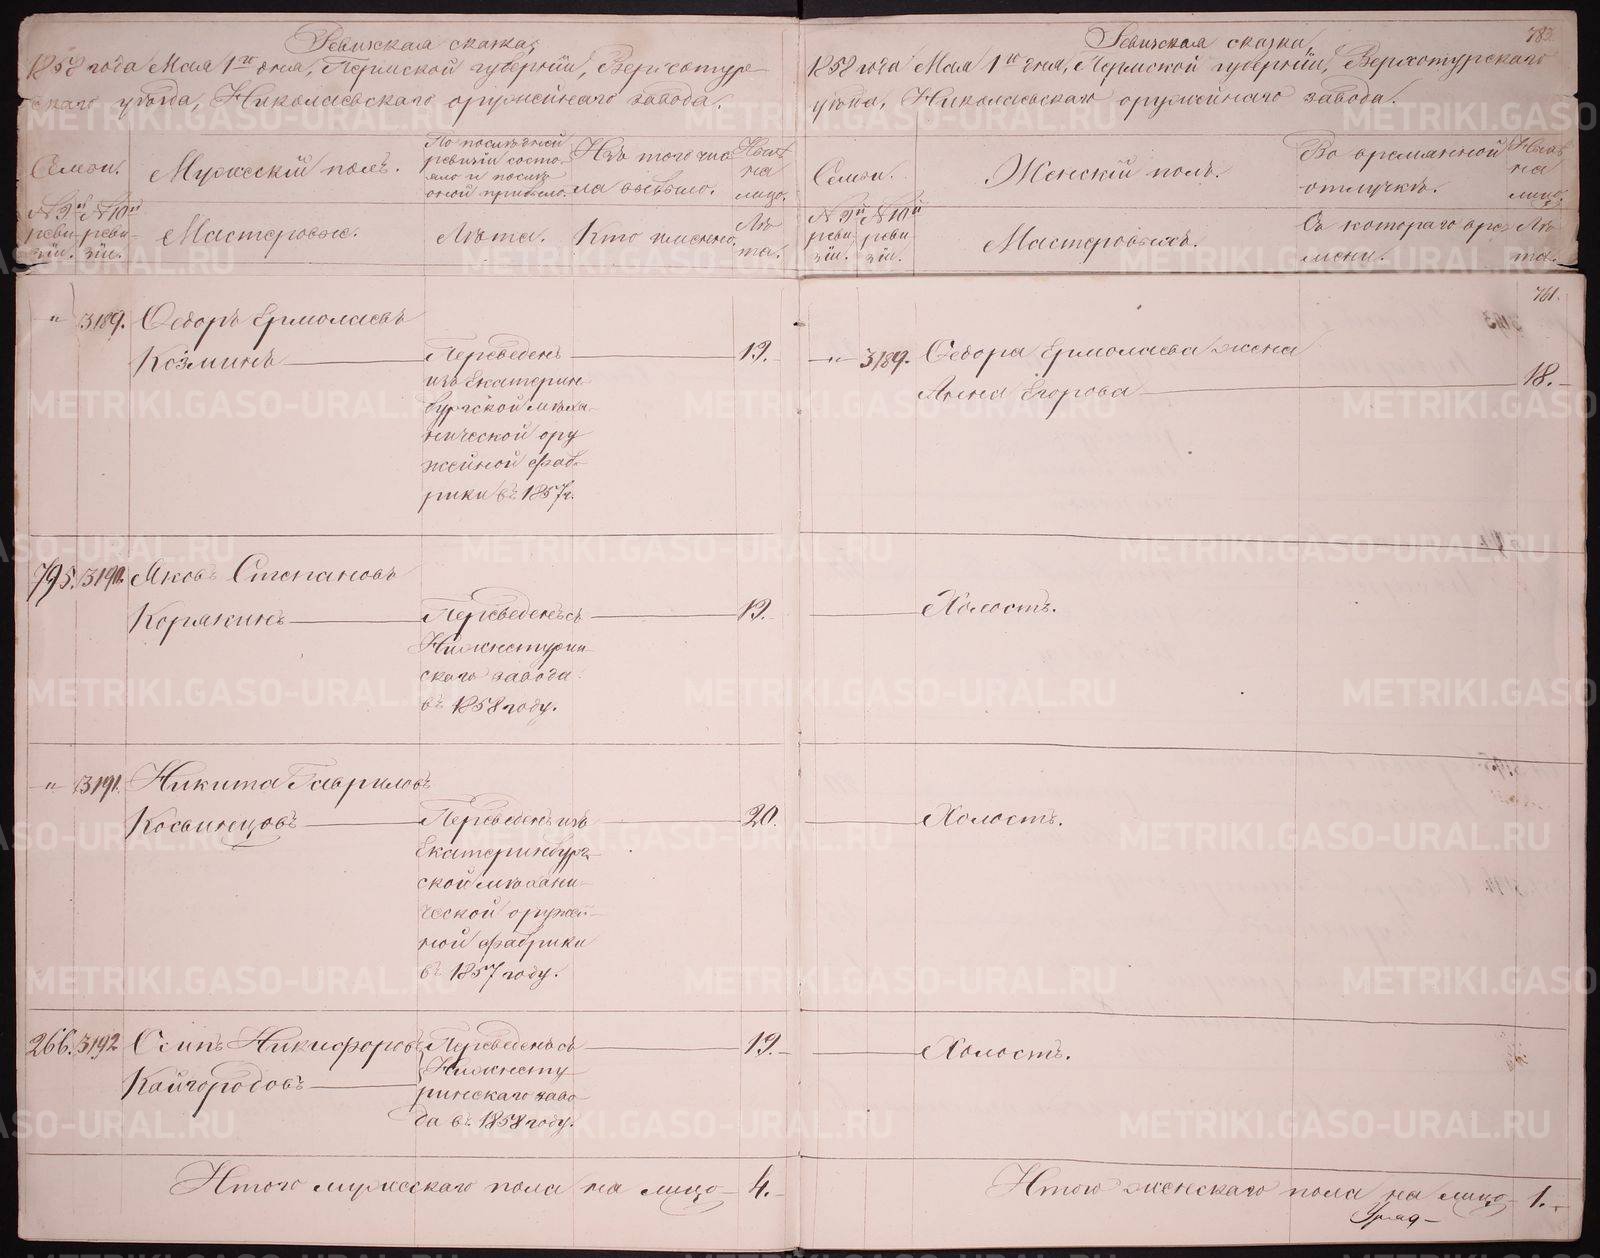 Ревизская сказка,
1858 года Мая 1го дня, Пермской губернии, Верхотур-
скаго уезда, Николаевскаго оружейнаго завода.
Семьи.
Мужескій полъ.
По последней
ревизіи состо-
яло и после
оной прибыло.
Изъ того чис-
ла выбыло.
Ныне
на
лицо.
№ 9й № 10й
реви- реви-
зіи. зіи.
Мастеровые.
Лѣта.
Кто именно.
Лѣ-
та.
" 3189. Ѳедоръ Ермолаевъ
Козминъ
Переведенъ
изъ Екатерин-
бургской меха-
нической ору-
жейной фаб-
рики въ 1857 г.
19.
795. 3190. Яковъ Степановъ
Корякинъ
Переведенъ съ
Нижнетурин-
скаго завода
въ 1858 году.
19.
" 3191. Никита Гавриловъ
Косвинцовъ
Переведенъ изъ
Екатеринбург-
ской механи-
ческой оружей-
ной фабрики
въ 1857 году.
20.
266. 3192 Осипъ Никифоровъ
Кайгородовъ
Переведенъ съ
Нижнету-
ринскаго заво-
да въ 1858 году.
19.
Итого мужескаго пола на лицо 4.
Ревизская сказка,
782
1858 года Мая 1го дня, Пермской губерніи, Верхотурскаго
уезда, Николаевскаго оружейнаго завода.
Семьи.
Женскій полъ.
Во временной
отлучкѣ.
Ныне
на
лицо.
№ 9й № 10й
реви- реви-
зіи. зіи.
Мастеровыхъ.
Съ котораго вре-
мени.
Лѣ-
та.
761.
" 3189. Ѳедора Ермолаева жена
Анна Егорова 18.
Холостъ.
Холостъ.
Холостъ.
Итого женскаго пола на лицо 1.
METRIKI.GASO-URAL.RU